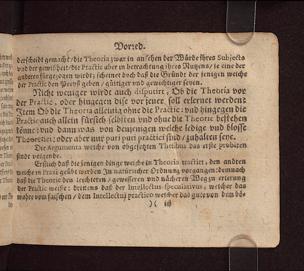 Vorred.
derscheid gemacht/ die Theoria zwar in ansehen der Würde ihres Subjects
und der gewißheit/ die Practic aber in betrachtung ihres Nutzens/ je eine der
anderen fürgezogen wirdt/ scheinet doch daß die Gründe der jenigen welche
der Practic den Preyß geben/ gültiger und gewichtiger seyen.
Nicht weniger wirdt auch disputirt/ Ob die Theoria vor
der Practic, oder hingegen dise vor jener soll erlernet werden:
Item Ob die Theoria alleinig ohne die Practic: und hingegen die
Practic auch allein fürsich selbsten und ohne die Theorie bestehen
könne: und dann was von denjenigen welche ledige und blosse
Theoretici: oder aber nur puri puri practici sind/ zuhalten seye.
Die Argumenta welche von obgesetzten Thesibus das erste probieren
sind volgende.
Erstlich daß die jenigen dinge welche in Theoria tractirt, den andern
welche in Praxi geübt werden in natürlicher Ordnung vorgangen: demnach
daß die Theorie den leichteren/ gewisseren und näheren Weg zu erlernung
der Practic weise: drittens daß der Intellectus speculativus, welcher das
wahre vom falschen/ dem Intellectui practico welcher das gute von dem bö-
)( iij